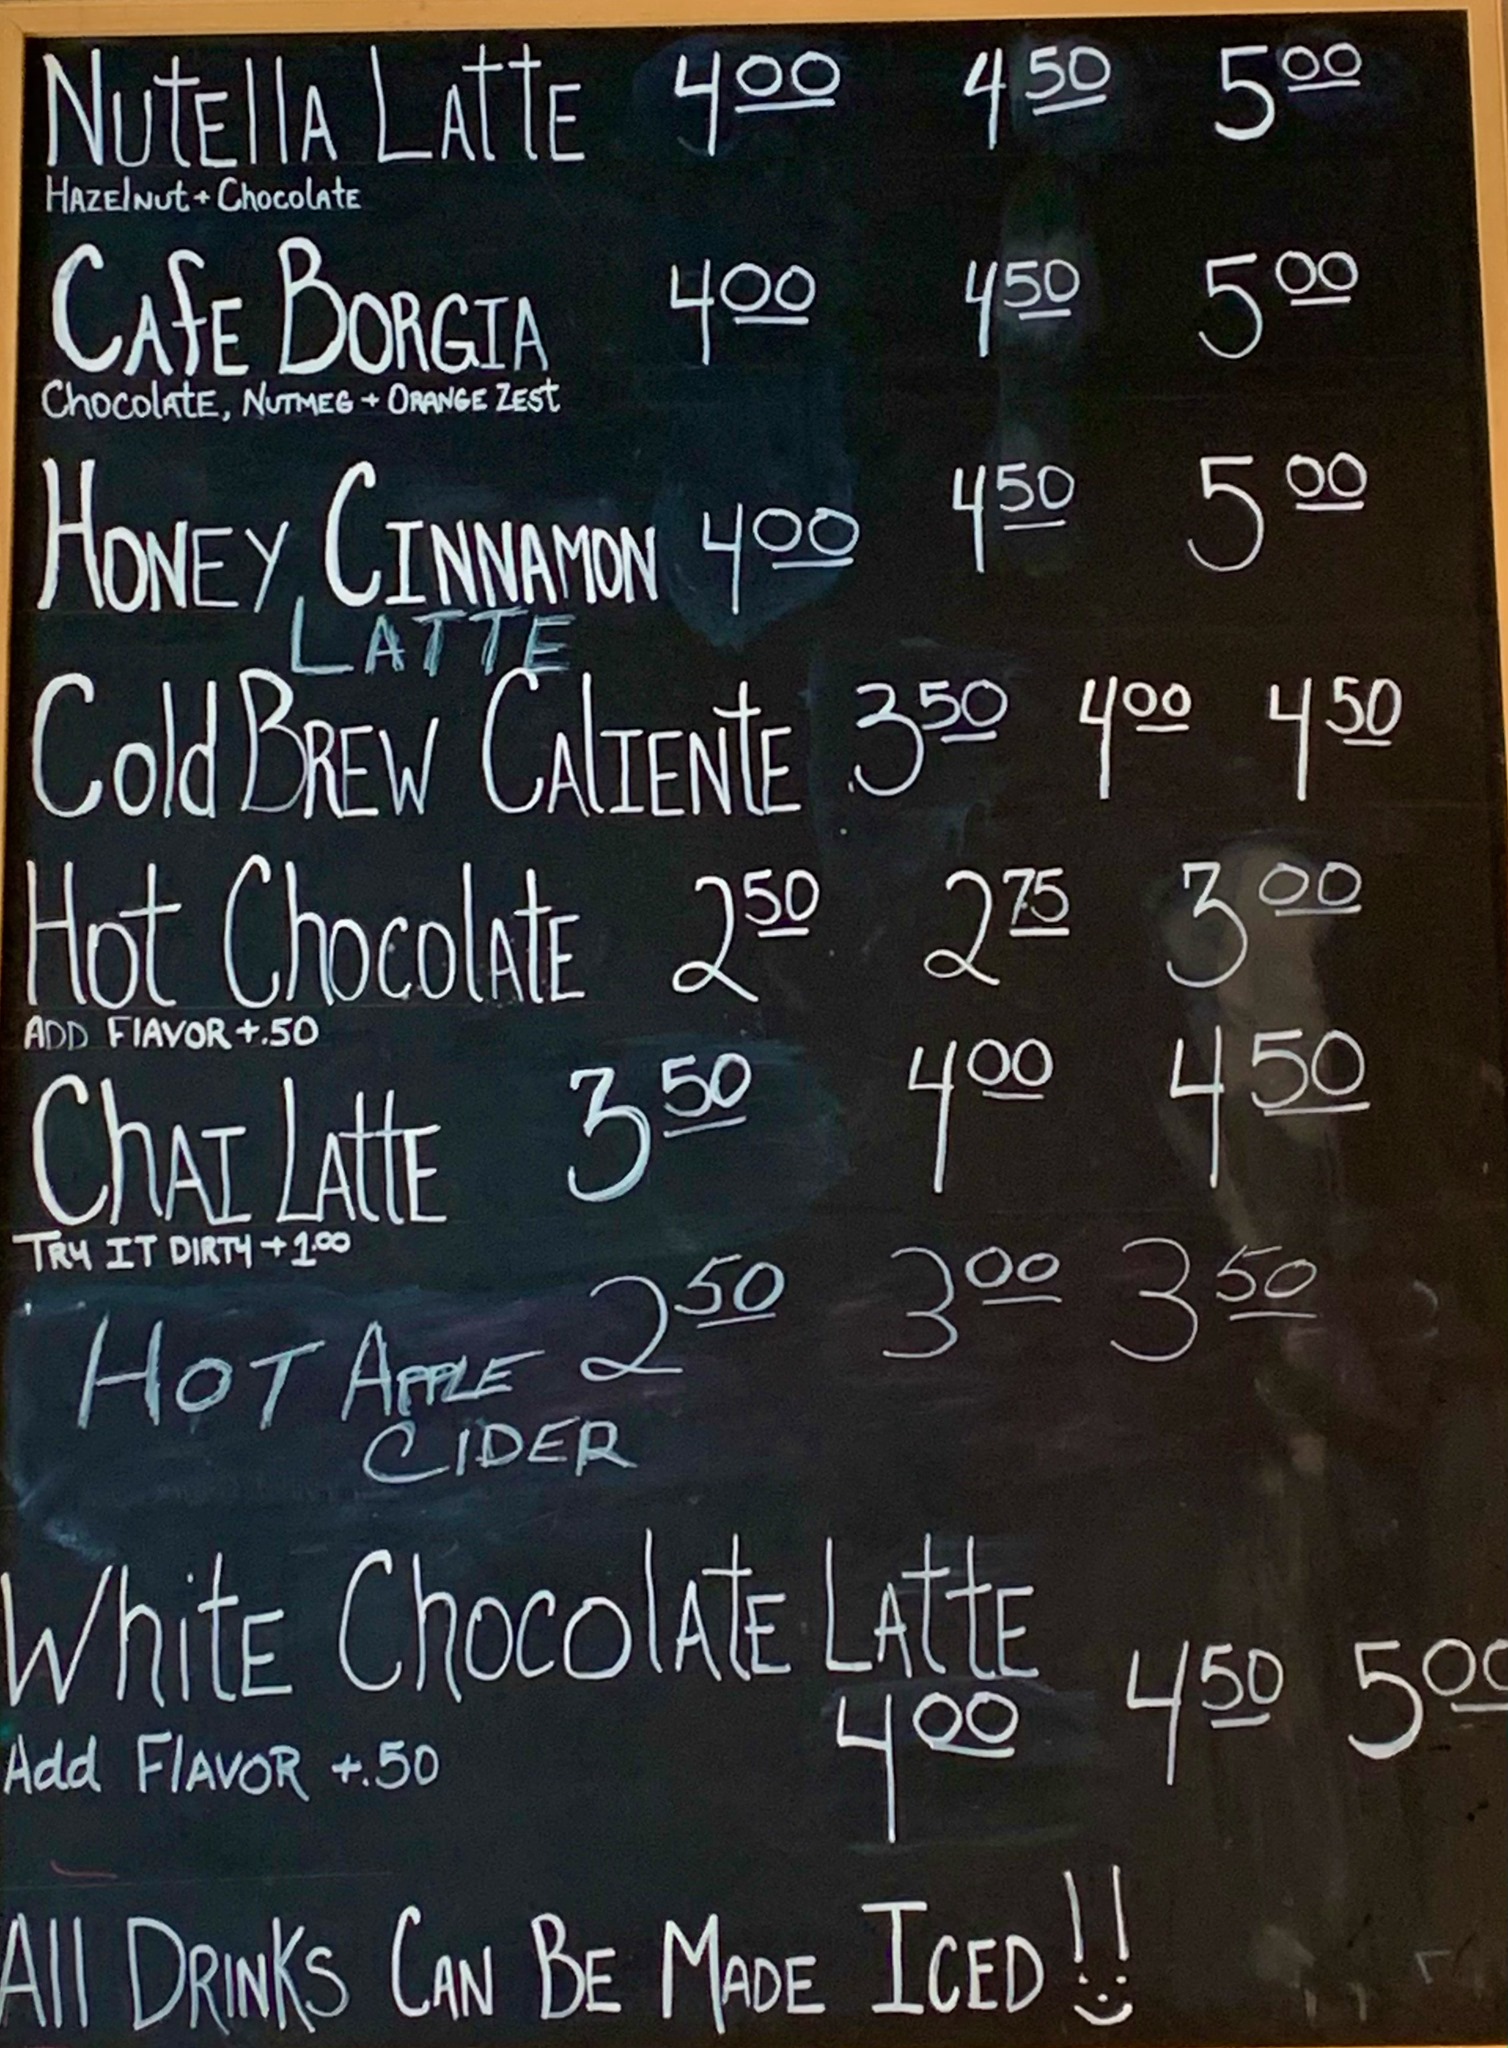 NUTELLA LATTE 4.00 4.50 5.00
HAZELNUT + CHOCOLATE
CAFE BORGIA 4.00 4.50 5.00
CHOCOLATE, NUTMEG + ORANGE ZEST
HONEY CINNAMON 4.00 4.50 5.00
LATTE
COLD BREW CALIENTE 3.50 4.00 4.50
HOT CHOCOLATE 2.50 2.75 3.00
ADD FLAVOR +.50
CHAI LATTE 3.50 4.00 4.50
TRY IT DIRTY + 1.00
HOT APPLE 2.50 3.00 3.50
CIDER
WHITE CHOCOLATE LATTE
4.00 4.50 5.00
Add FLAVOR +.50
ALL DRINKS CAN BE MADE ICED!!